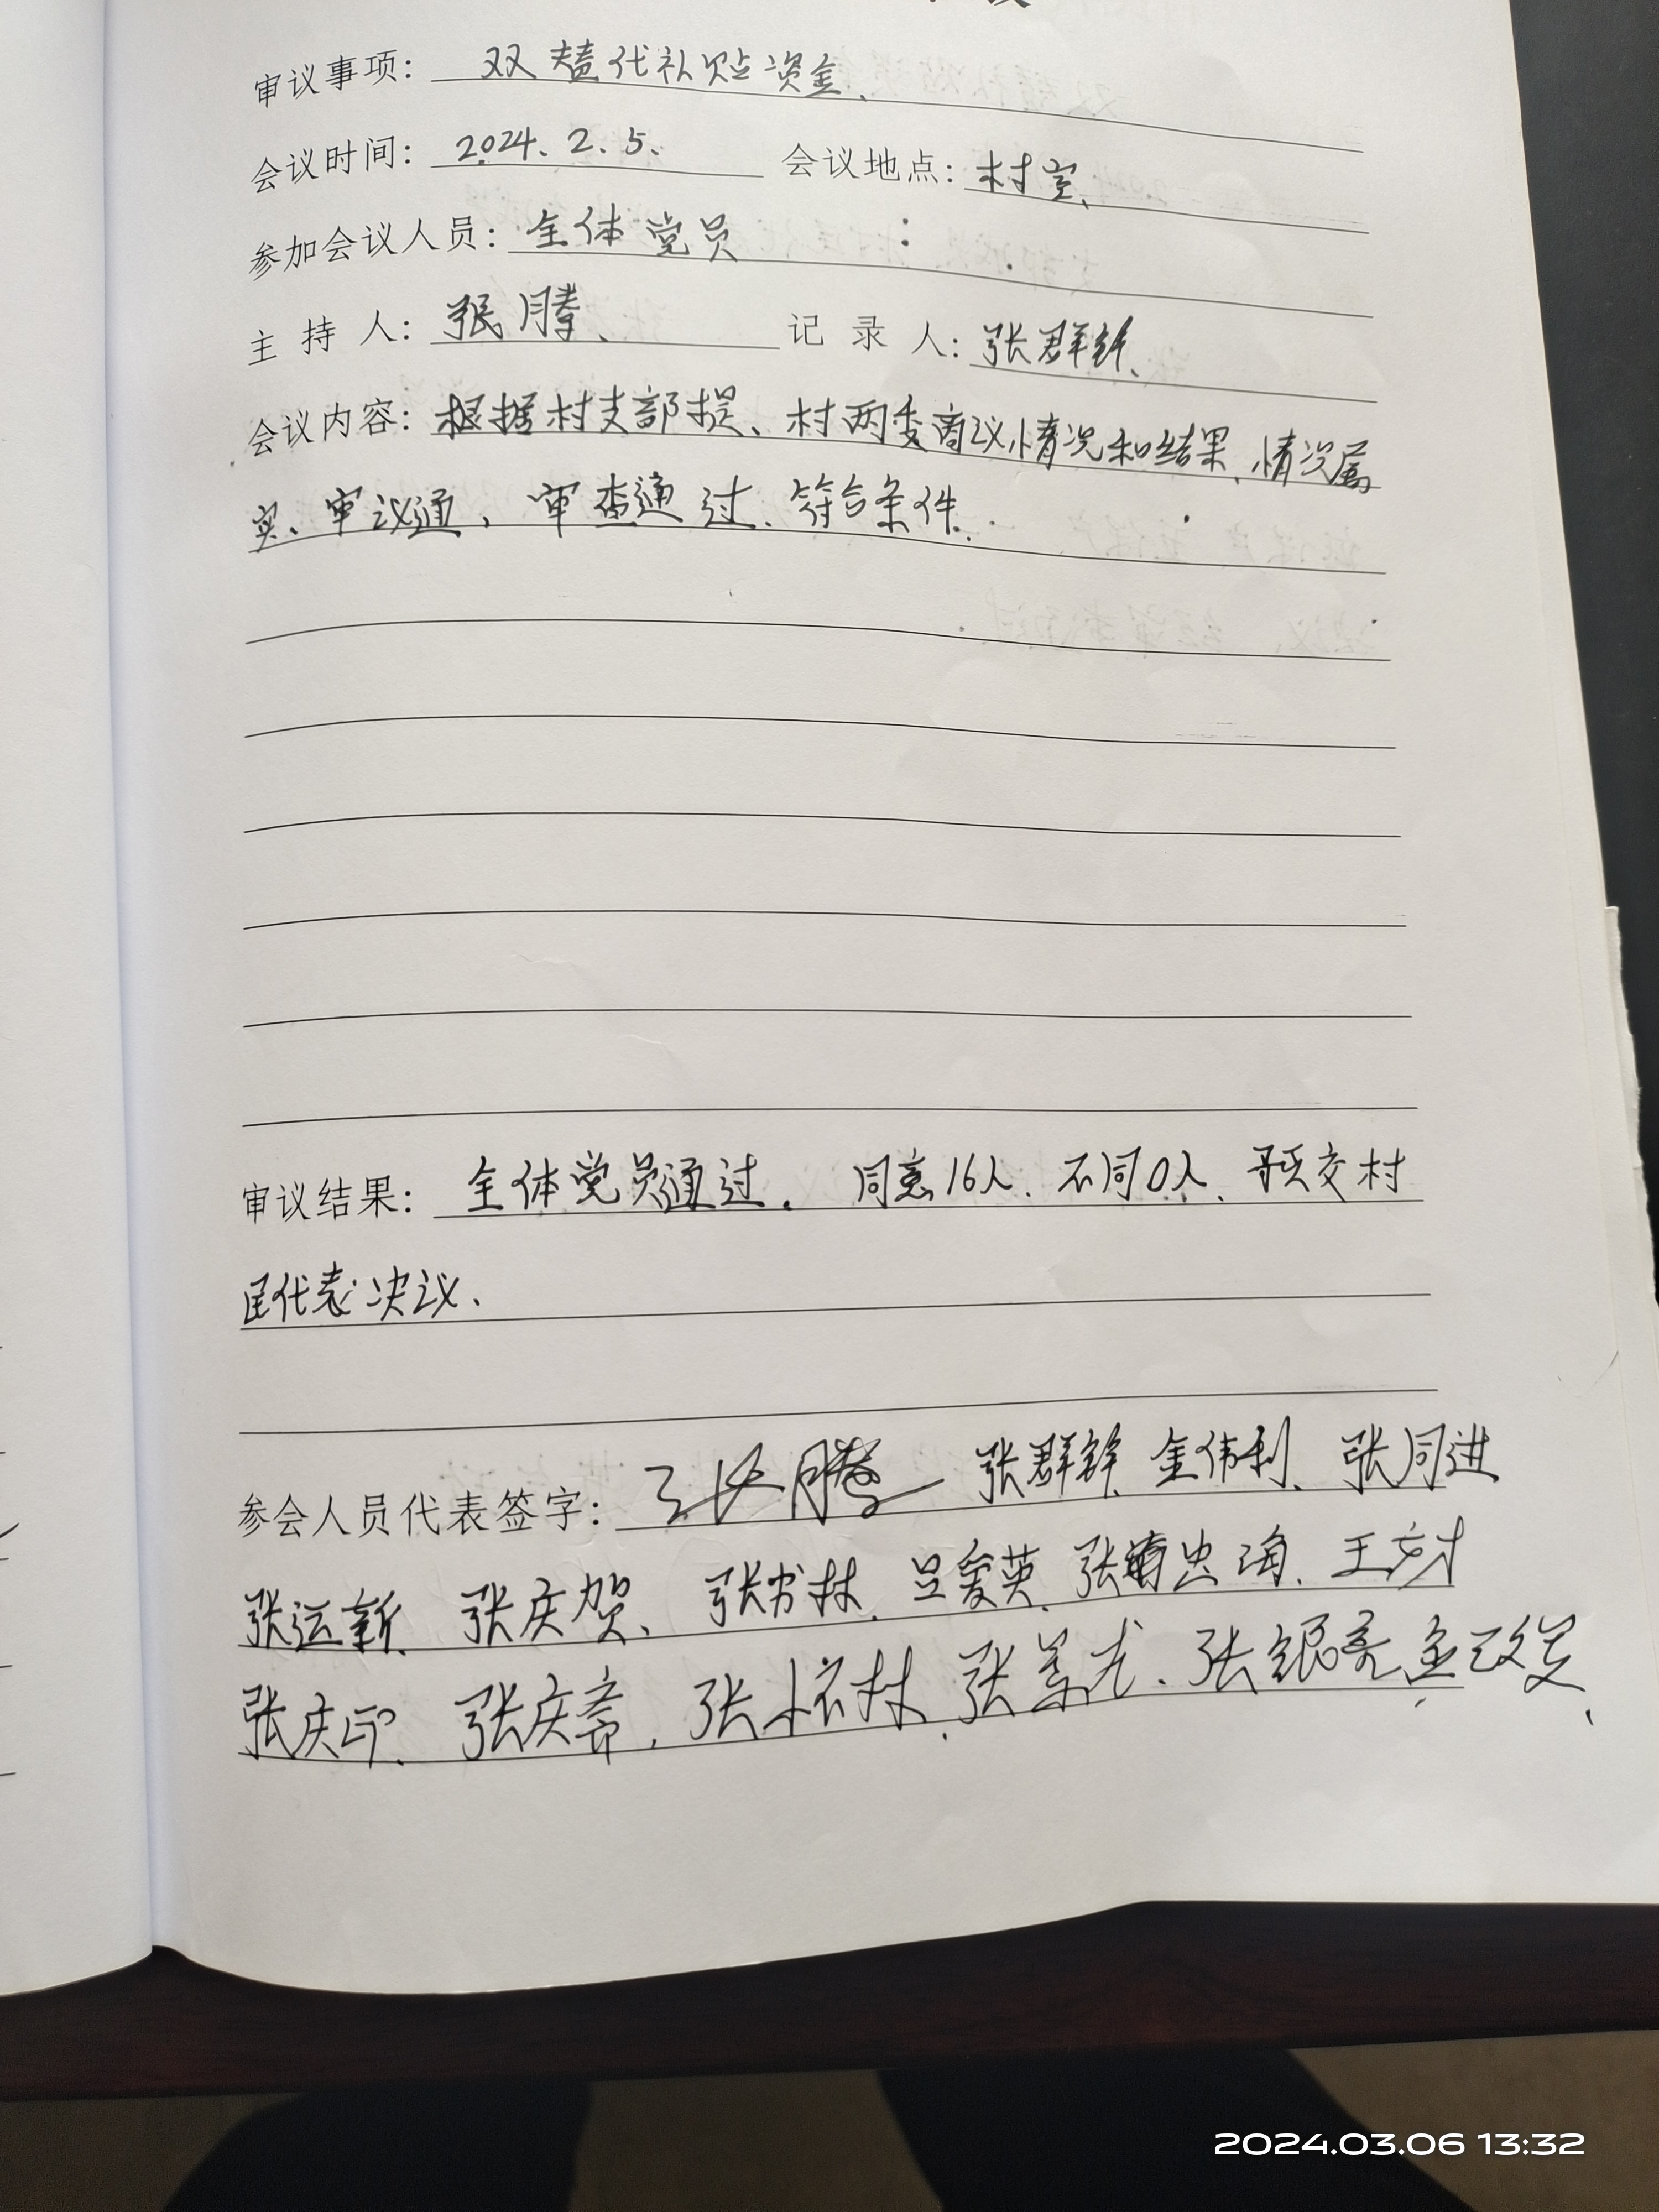 审议事项：双替代补贴资金、
会议时间：2024.2.5. 会议地点：村室、
参加会议人员：全体党员
主持人：张腾、 记录人：张群锋、
会议内容：根据村支部提、村两委商议情况和结果、情况属
实、审议通、审查通过、符合条件.
审议结果：全体党员通过. 同意16人、不同0人、预交村
民代表决议、
参会人员代表签字：张腾 张群锋 金伟利、张同进
张运新、张庆贺、张书林、吕爱英、张 海、王方才
张庆印、张庆斋、张 林、张 、张银亮 金
2024.03.06 13:32